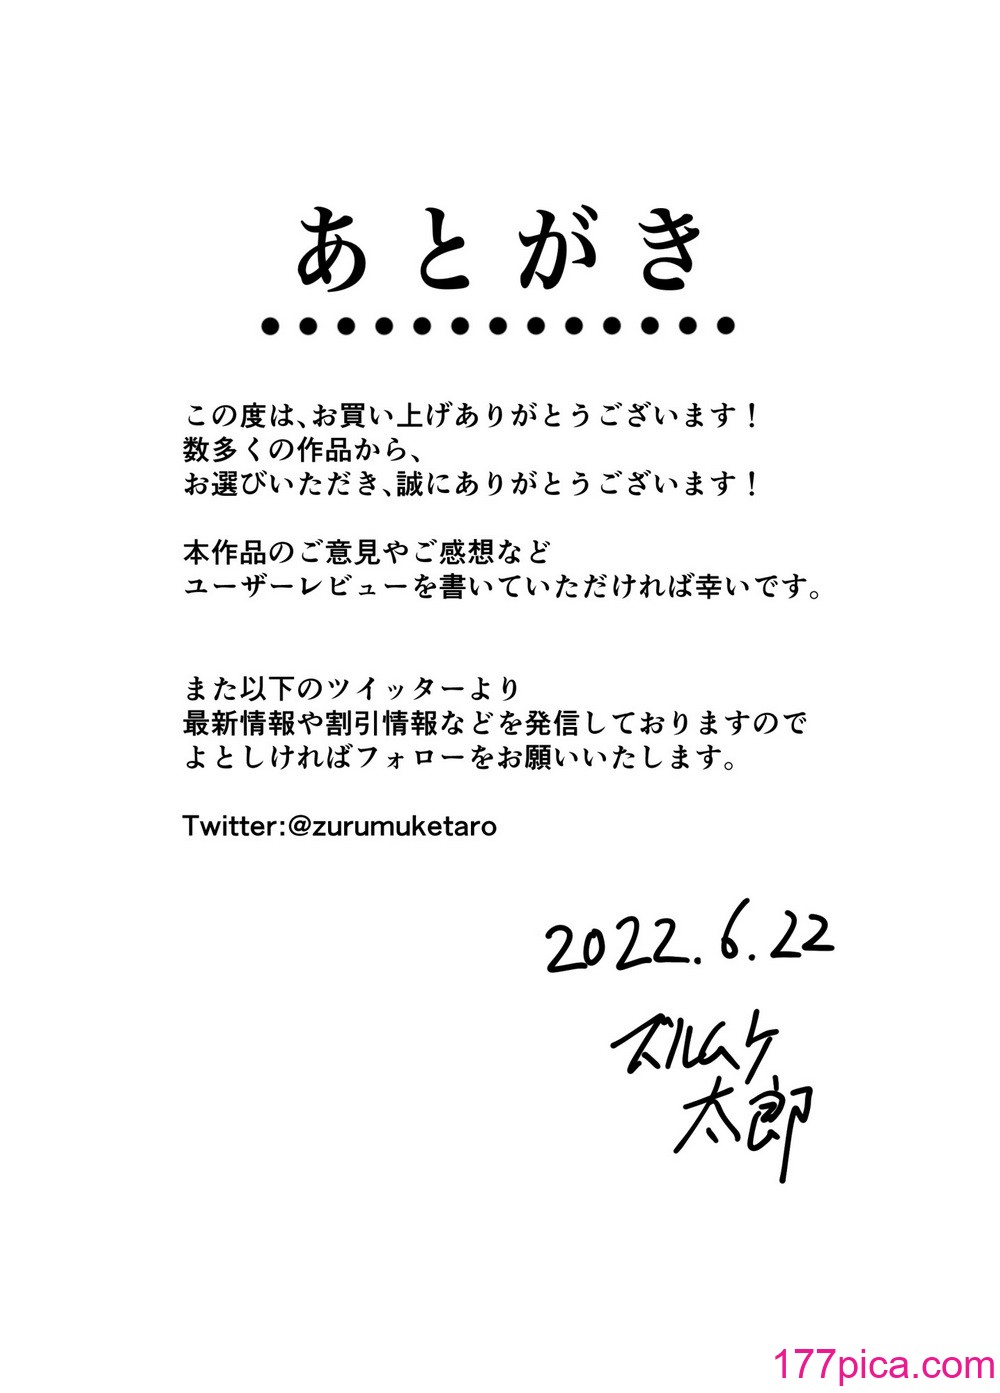 あとがき
この度は、お買い上げありがとうございます！
数多くの作品から、
お選びいただき、誠にありがとうございます！
本作品のご意見やご感想など
ユーザーレビューを書いていただければ幸いです。
また以下のツイッターより
最新情報や割引情報などを発信しておりますので
よとしければフォローをお願いいたします。
Twitter:@zurumuketaro
2022.6.22
ズルムケ
太郎
177pica.com